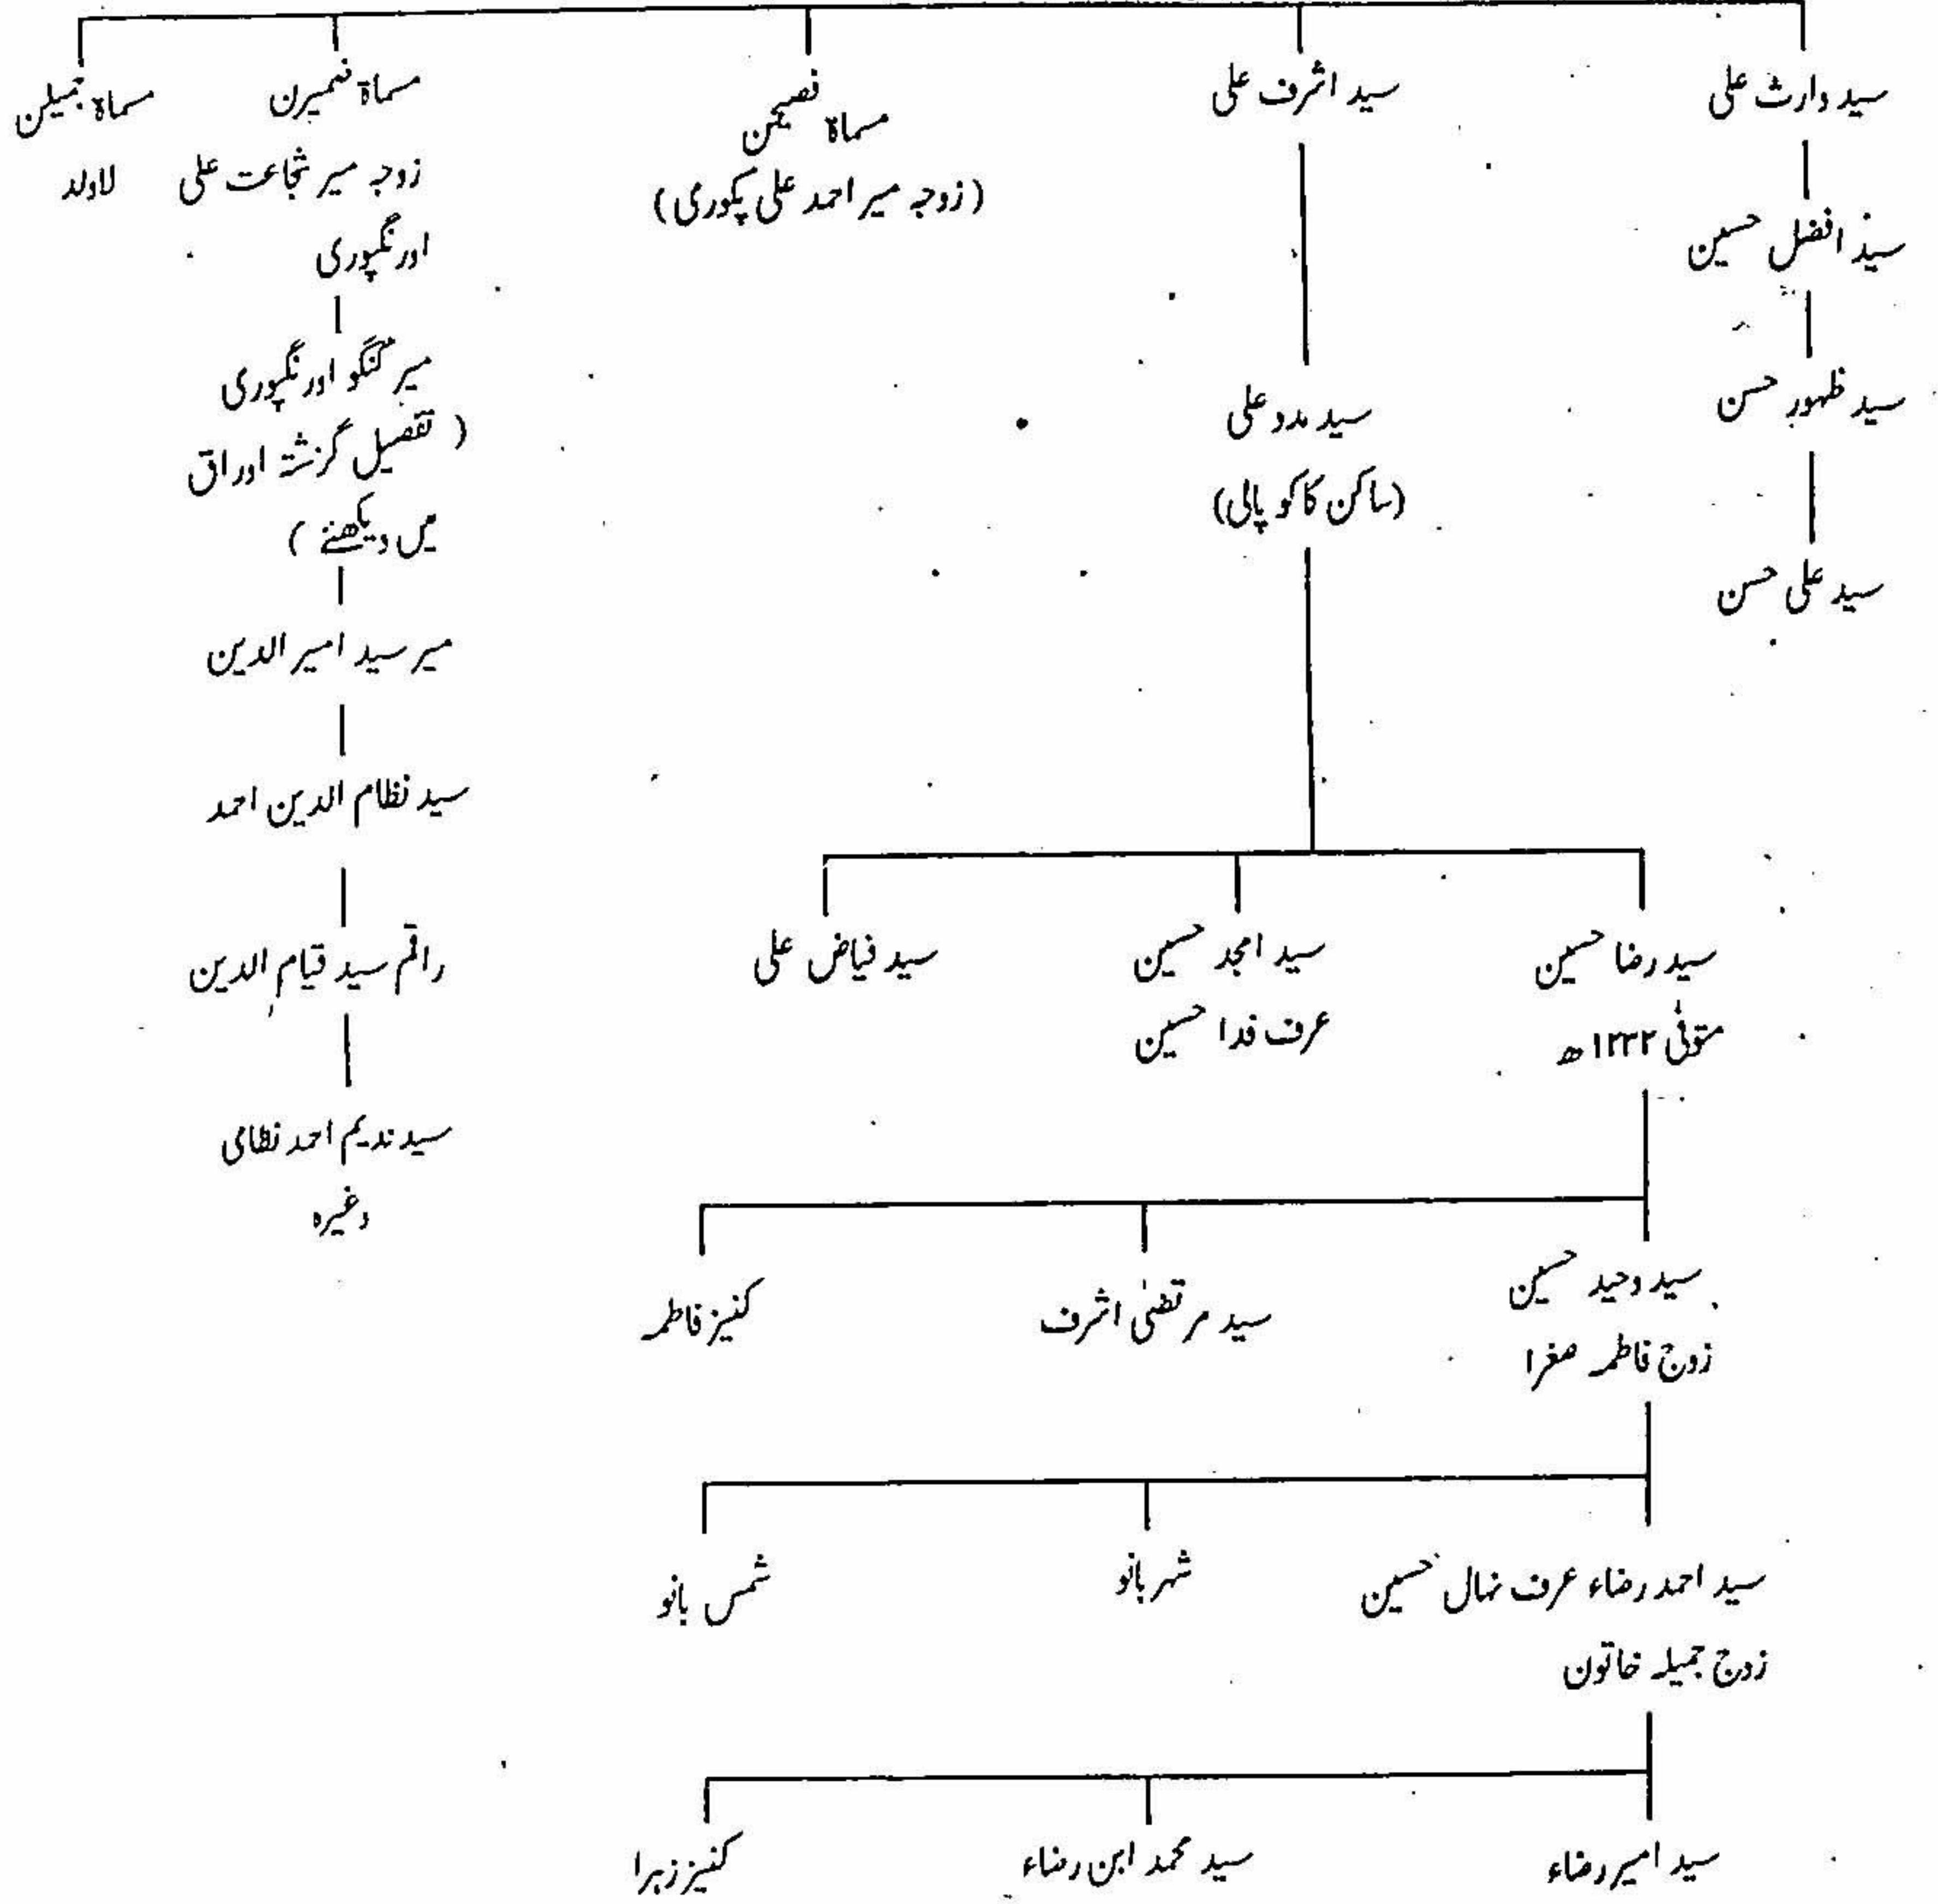 سید وارث علی
سید افضل حسین
سید ظہور حسن
سید علی حسن
سید اشرف علی
سید مدد علی
(ساکن کاکو پالی)
سید رضا حسین
متوفیٰ ۱۲۳۲ھ
سید امجد حسین
عرف فدا حسین
سید فیاض علی
سید وحید حسین
زوج فاطمہ صغرا
سید مرتضیٰ اشرف
کنیز فاطمہ
سید احمد رضاء عرف نہال حسین
زوج جمیلہ خاتون
شہر بانو
شمس بانو
سید امیر رضاء
سید محمد ابن رضاء
کنیز زہرا
مسماۃ فصیحن
(زوجہ میر احمد علی پکوری)
مسماۃ ضمیرن
زوجہ میر شجاعت علی
اورنگپوری
میر گنگو اورنگپوری
( تفصیل گزشتہ اوراق
میں دیکھئے )
میر سید امیر الدین
سید نظام الدین احمد
راقم سید قیام الدین
سید ندیم احمد نظامی
وغیرہ
مسماۃ جمیلن
لاولد